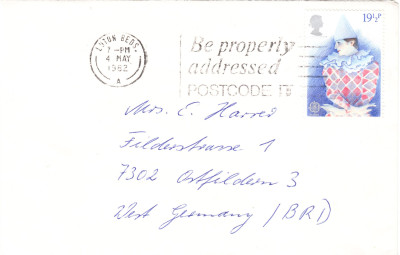 LUTON BEDS.
7-PM
4 MAY
1982
A
Be properly
addressed
POSTCODE IT
19½p
Mrs. E. Harred
Felderstrasse 1
7302 Ostfildern 3
West Germany (BRD)